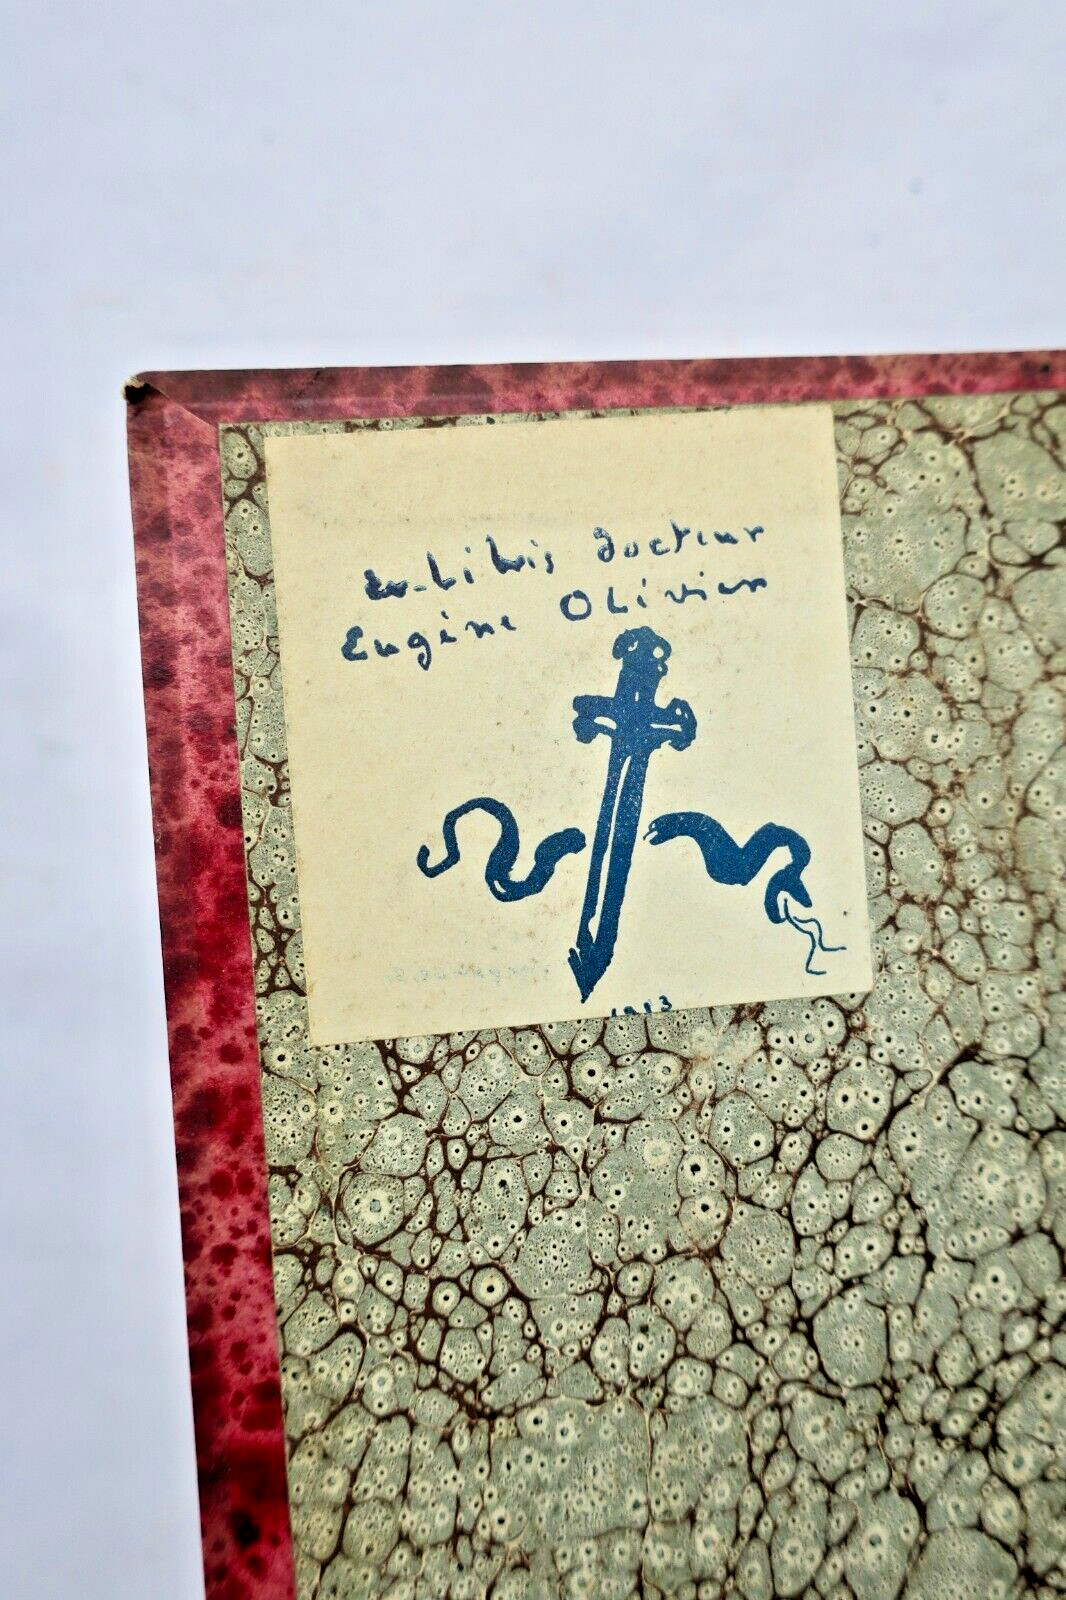 Ex-Libris docteur
Eugène Olivier
1913